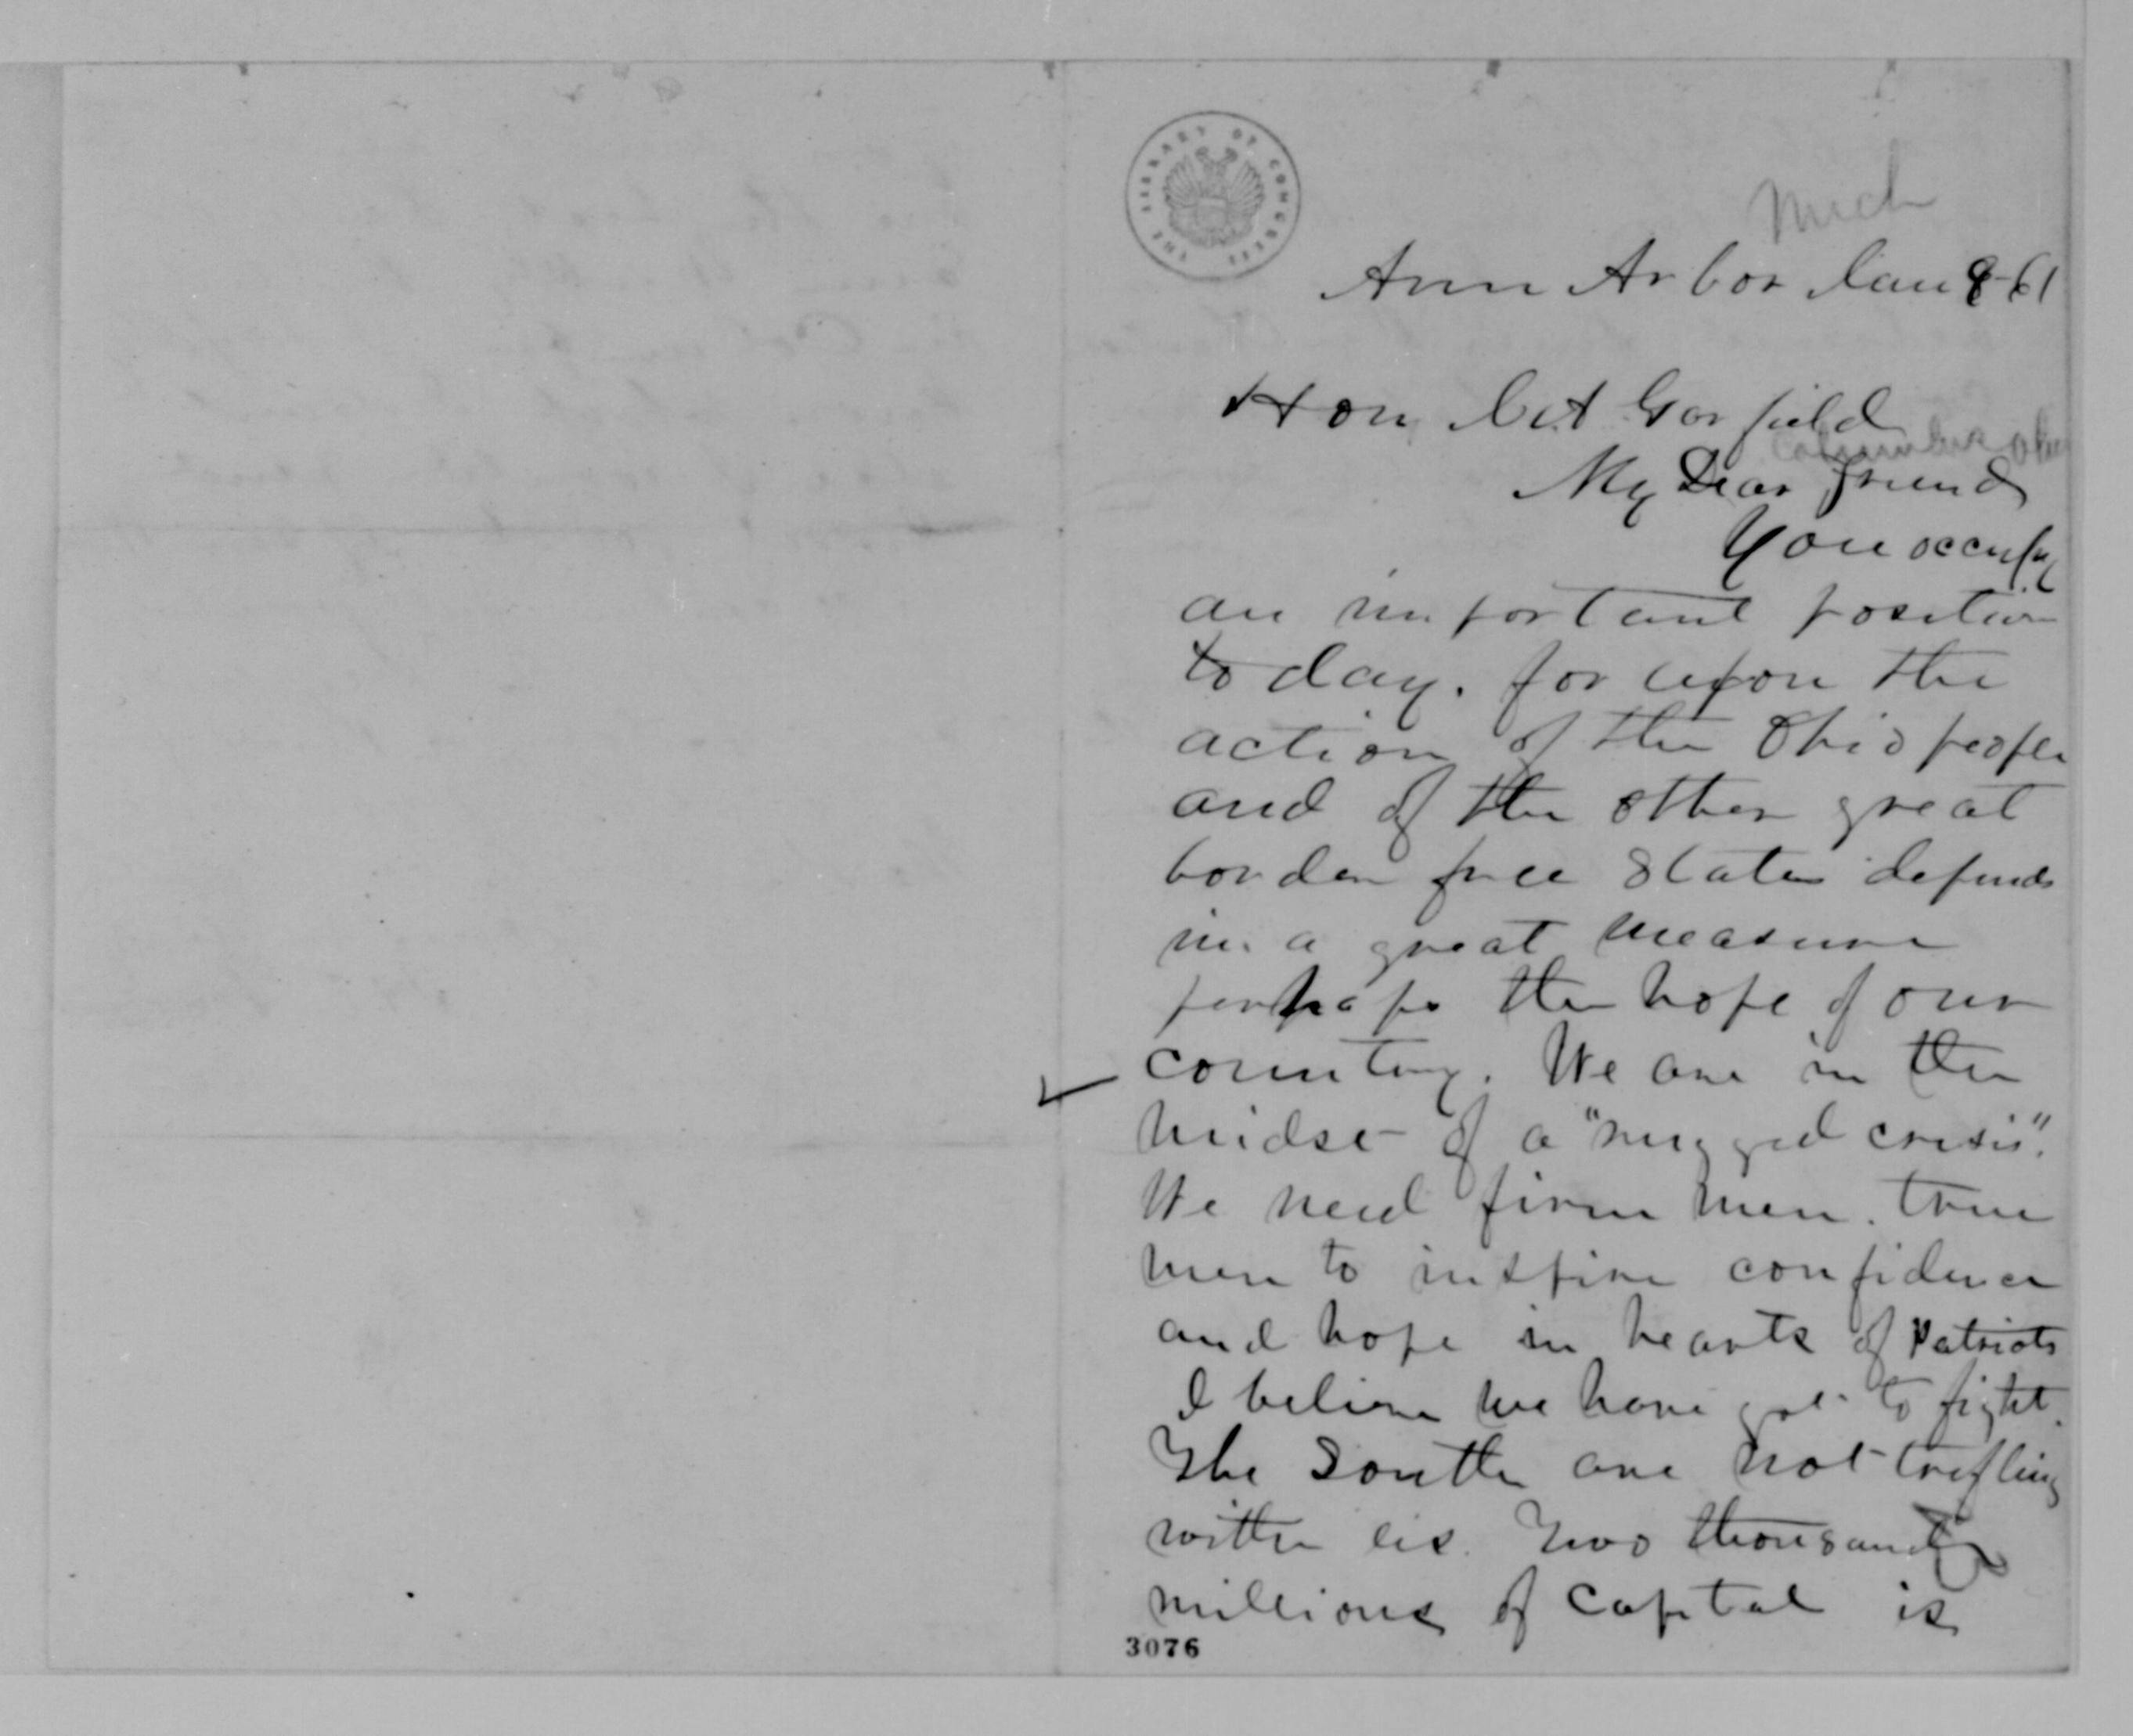 THE LIBRARY OF CONGRESS
Mich
Ann Arbor Jan 8-61
Hon J A Garfield
Columbus Ohio
My Dear Friend
You occupy
an important position
to day. for upon the
action of the Ohio people
and of the other great
border free States depends
in a great measure
perhaps the hope of our
country. We are in the
midst of a "rugged crisis".
We need firm men. true
men to inspire confidence
and hope in hearts of Patriots
I believe we have got to fight.
The South are not trifling
with us. Two thousand
millions of capital is
3076